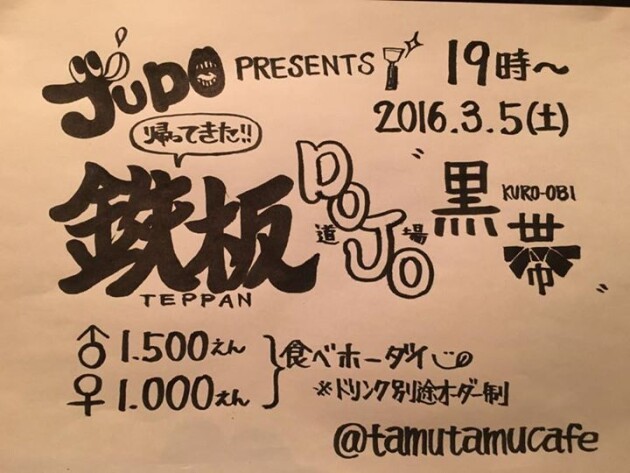 JUDO PRESENTS 19時～
2016.3.5(土)
帰ってきた!!
鐵板 DOJO 道場 〝黒帯〟
TEPPAN KURO-OBI
♂ 1.500えん
♀ 1.000えん
食べホーダイ
※ドリンク別途オーダー制
@tamutamucafe